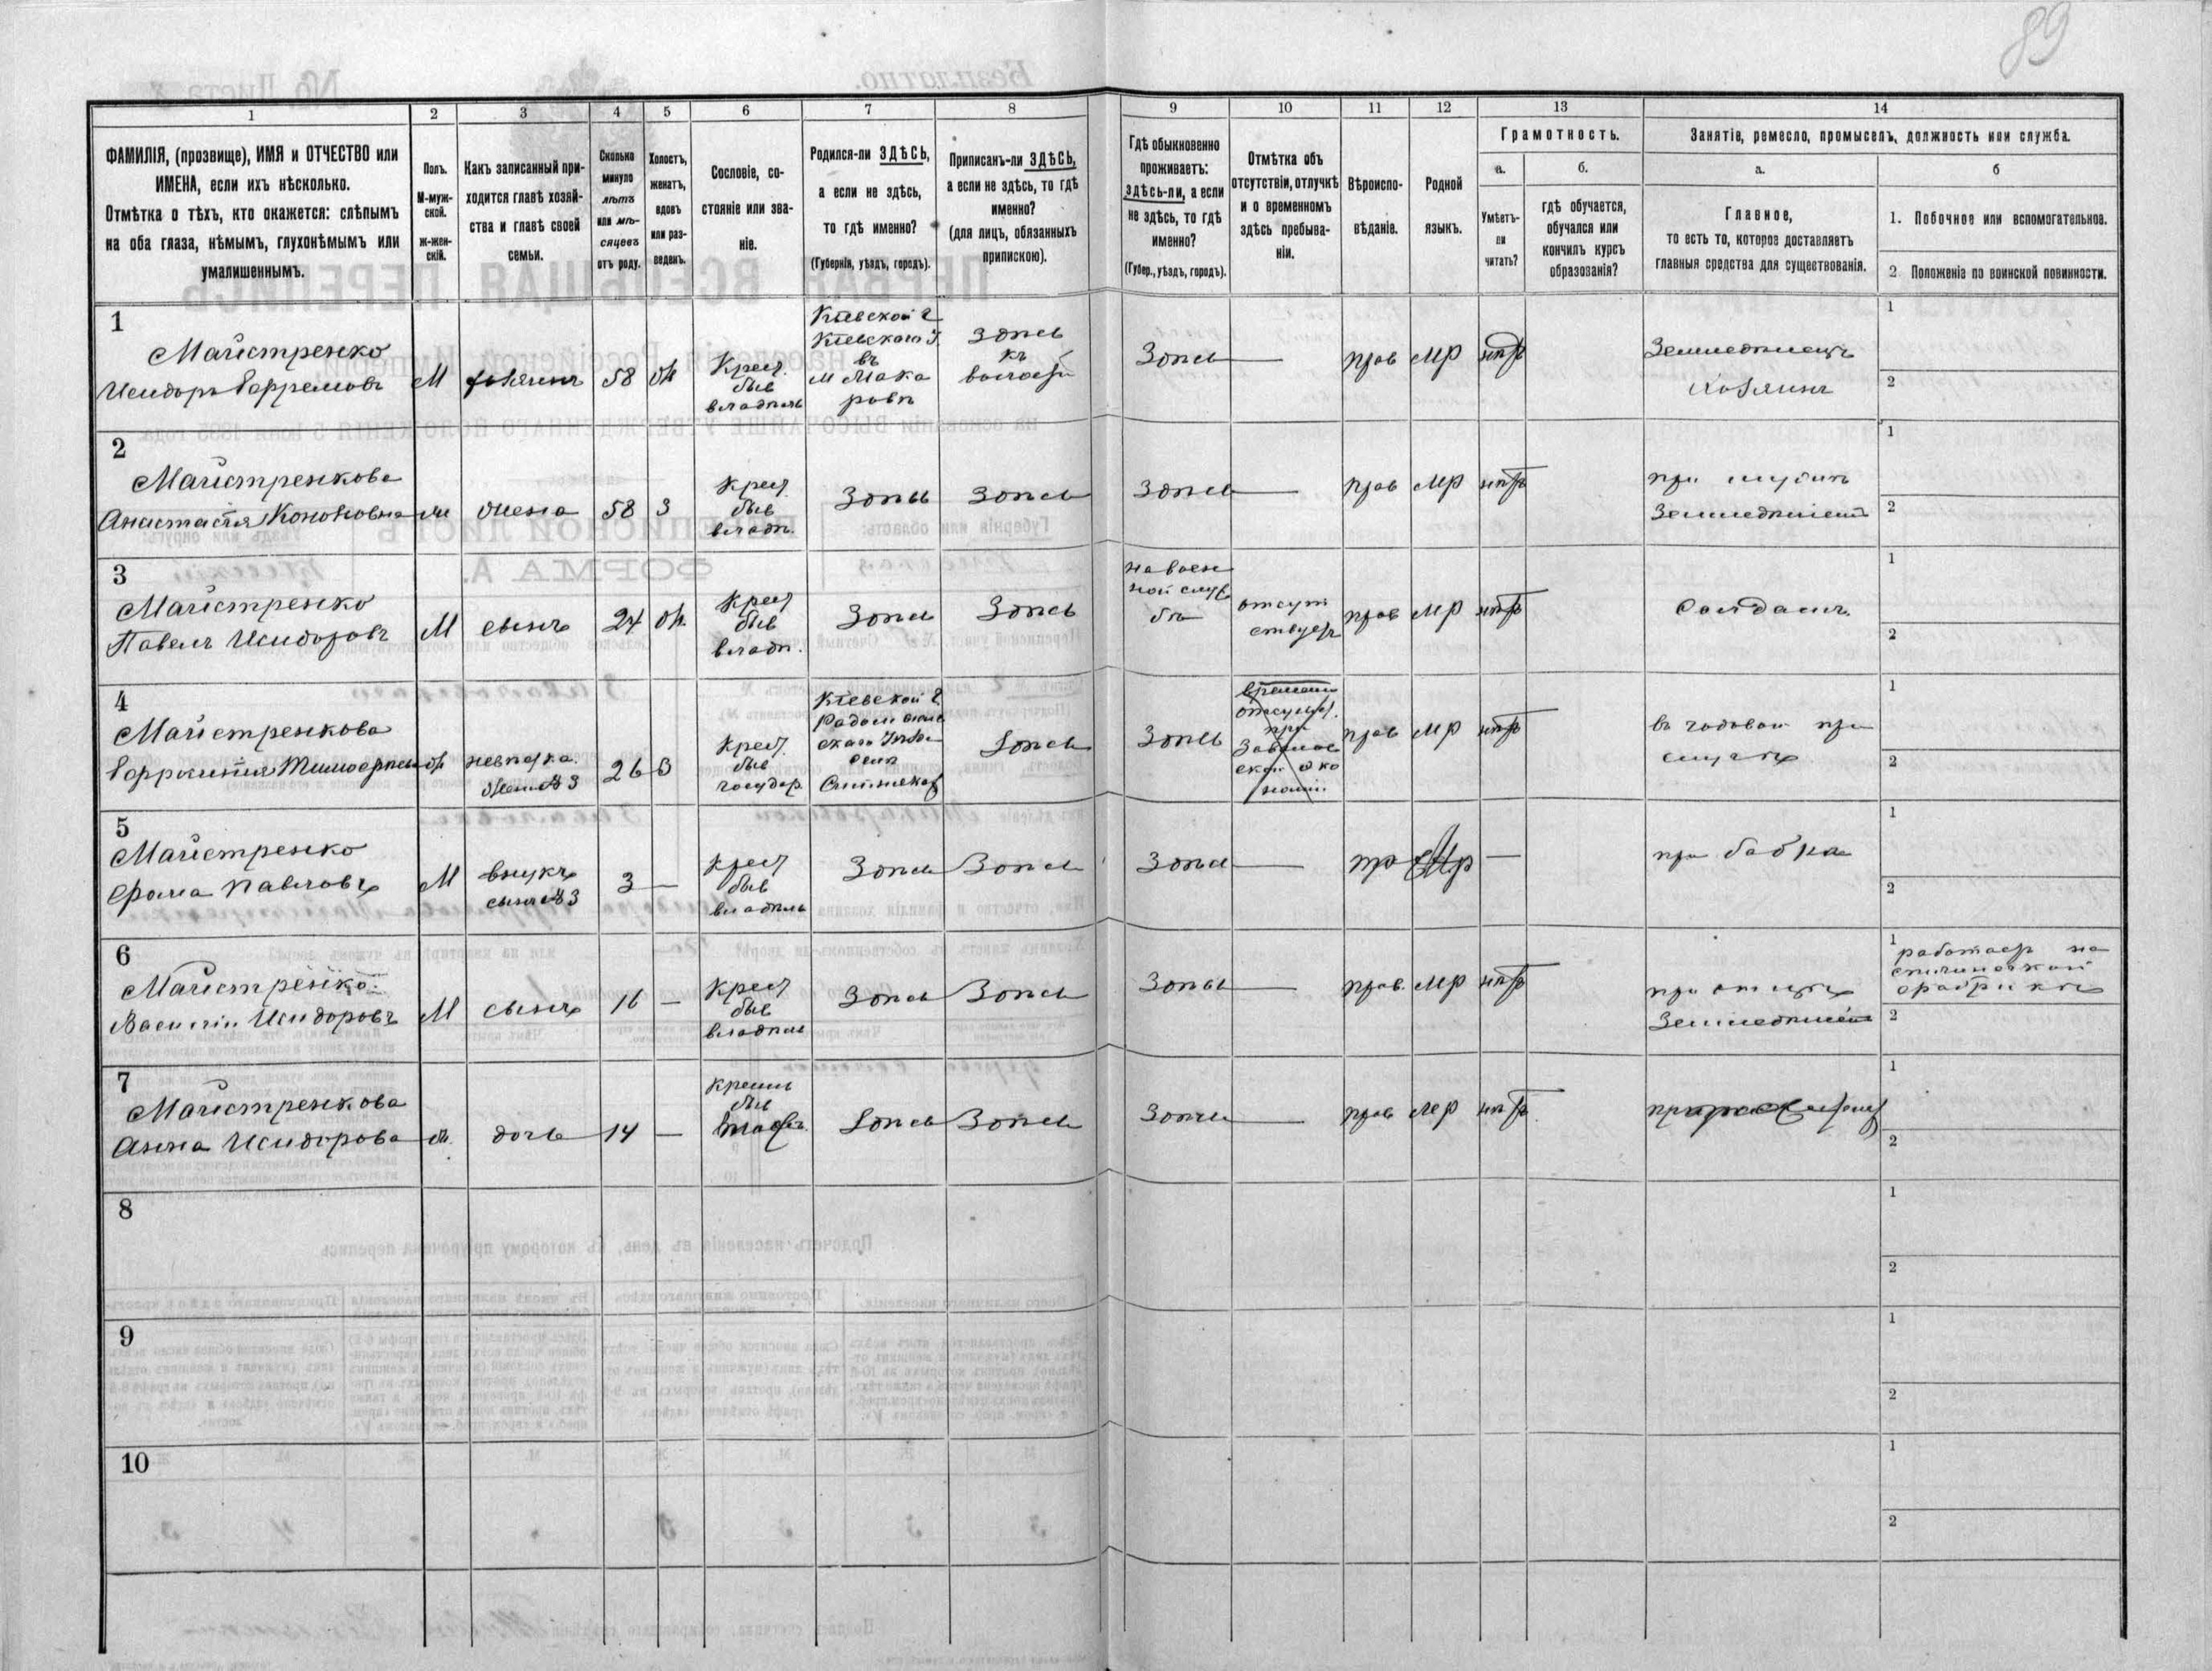 89
1
2
3
4
5
6
7
8
9
10
11
12
13
14
ФАМИЛІЯ, (прозвище), ИМЯ и ОТЧЕСТВО или
ИМЕНА, если ихъ нѣсколько.
Отмѣтка о тѣхъ, кто окажется: слѣпымъ
на оба глаза, нѣмымъ, глухонѣмымъ или
умалишеннымъ.
Полъ.
М-муж-
ской.
ж-жен-
скій.
Какъ записанный при-
ходится главѣ хозяй-
ства и главѣ своей
семьи.
Сколько
минуло
лѣтъ
или мѣ-
сяцевъ
отъ роду.
Холостъ,
женатъ,
вдовъ
или раз-
веденъ.
Сословіе, со-
стояніе или зва-
ніе.
Родился-ли ЗДѢСЬ,
а если не здѣсь,
то гдѣ именно?
(Губернія, уѣздъ, городъ).
Приписанъ-ли ЗДѢСЬ,
а если не здѣсь, то гдѣ
именно?
(для лицъ, обязанныхъ
припискою).
Гдѣ обыкновенно
проживаетъ:
здѣсь-ли, а если
не здѣсь, то гдѣ
именно?
(Губер., уѣздъ, городъ).
Отмѣтка объ
отсутствіи, отлучкѣ
и о временномъ
здѣсь пребыва-
ніи.
Вѣроиспо-
вѣданіе.
Родной
языкъ.
Грамотность.
а.
Умѣетъ-
ли
читать?
б.
гдѣ обучается,
обучался или
кончилъ курсъ
образованія?
Занятіе, ремесло, промыселъ, должность или служба.
а.
Главное,
то есть то, которое доставляетъ
главныя средства для существованія.
б
1. Побочное или вспомогательное.
2. Положеніе по воинской повинности.
1
Майстренко
Исидоръ Ефремовъ
М
хозяинъ
58
Крест.
быв
владѣль
Кіевской г
Кіевскаго у
въ
м Мака
ровѣ
Здѣсь
къ
волости
Здѣсь —
прав
мр
нѣтъ
Земледѣлецъ
хозяинъ
1
2
2
Майстренкова
Анастасія Кононовна
жена
58
З
Крест.
быв
владѣ.
Здѣсь
Здѣсь
Здѣсь —
прав
мр
нѣтъ
при мужѣ
1
2
3
Майстренко
Павелъ Исидоровъ
М
сынъ
24
Крест
быв
владѣ.
Здѣсь
Здѣсь
на воен
ной служ
бѣ
отсут
ствуетъ
прав
мр
нѣтъ
Солдатъ.
1
2
4
Майстренкова
невѣстка.
жена №3
26
З
Крест.
быв
государ.
Кіевской г.
Здѣсь
Здѣсь
прав
мр
нѣтъ
въ годовой при
слугѣ
1
2
5
Майстренко
Павловъ
М
внукъ
сынъ №3
3
—
Крест
быв
владѣль
Здѣсь
Здѣсь
Здѣсь —
пр
мр
—
при бабкѣ
1
2
6
Майстренко
Василій Исидоровъ
М
сынъ
16
—
Крест
быв
владѣль
Здѣсь
Здѣсь
Здѣсь —
прав.
мр
нѣтъ
при отцѣ
1
работаетъ на
спичечной
фабрикѣ
2
7
Майстренкова
Анна Исидорова
дочь
14
—
Крест
быв
Здѣсь
Здѣсь
Здѣсь —
прав
мр
нѣтъ
1
2
8
1
2
9
1
2
10
1
2